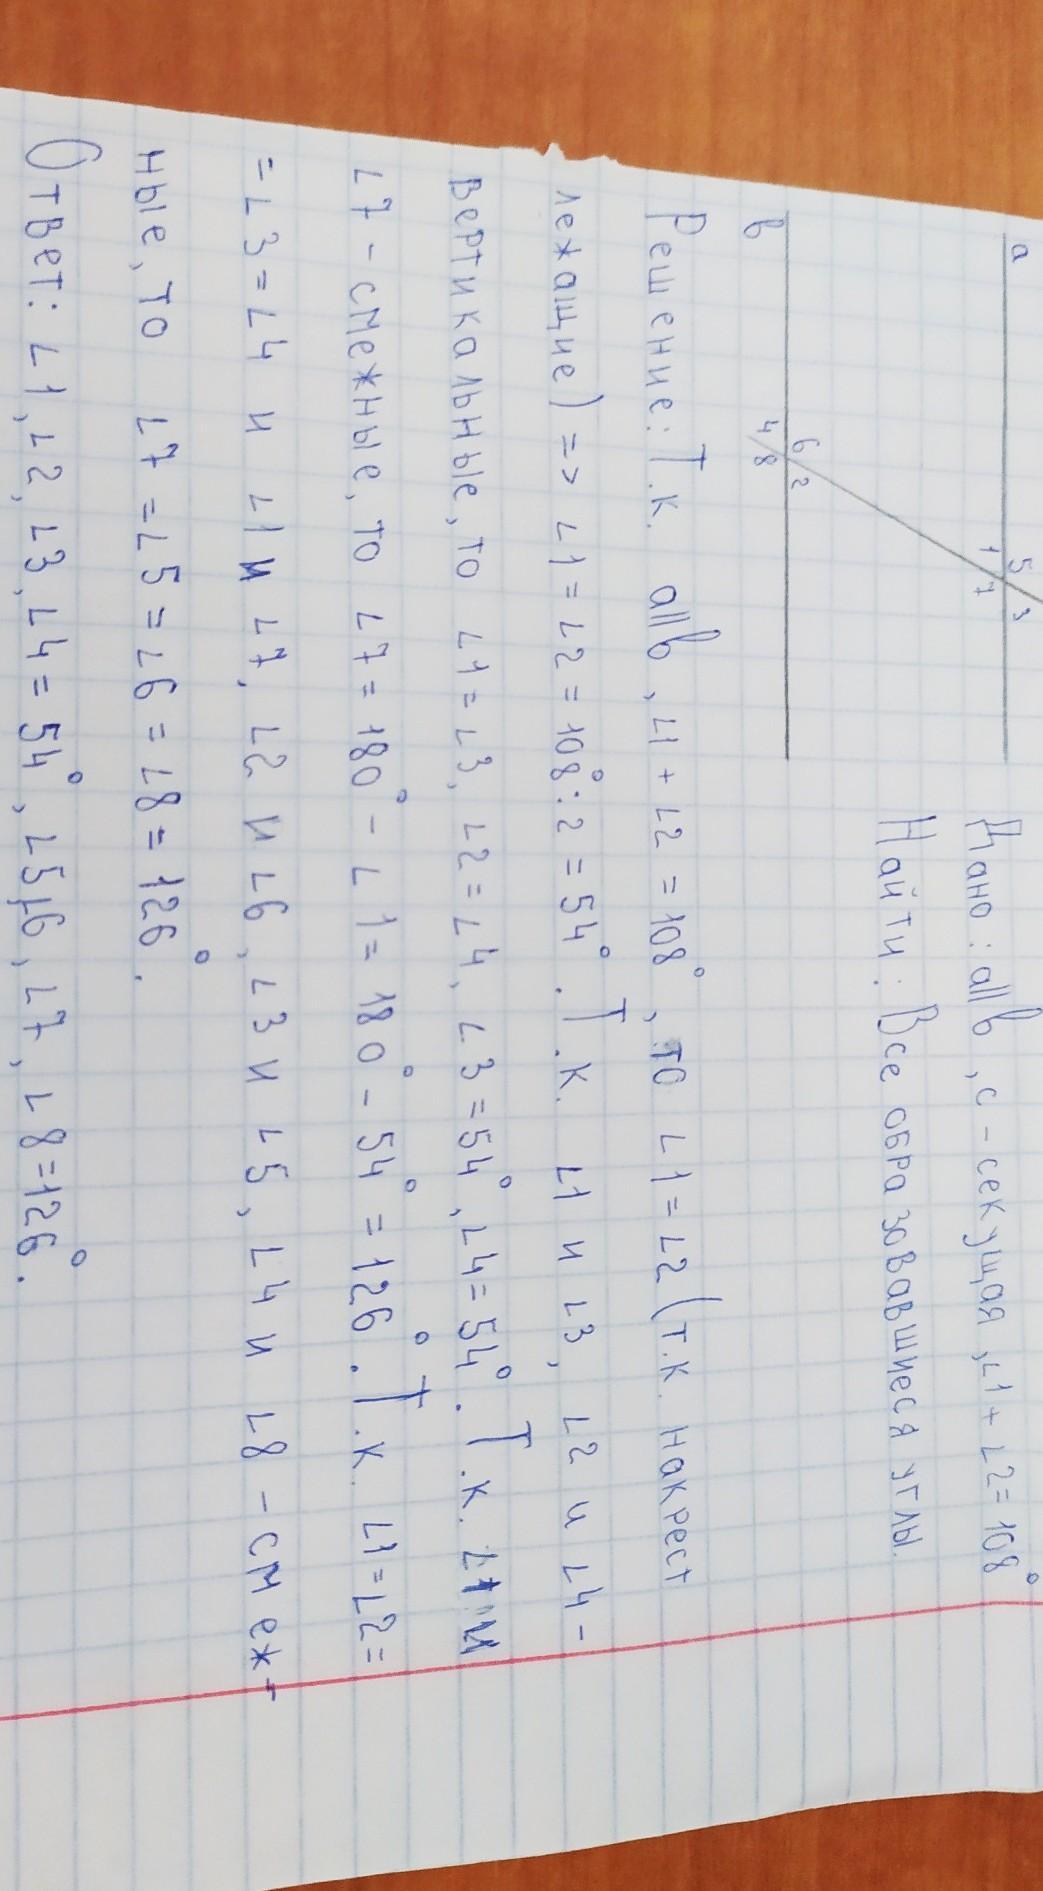 Дано: a||b, c - секущая, ∠1 + ∠2 = 108°
Найти: Все образовавшиеся углы.
a
5 3
1 7
6 2
4 8
b
Решение: Т.к. a||b, ∠1 + ∠2 = 108°, то ∠1 = ∠2 (т.к. накрест
лежащие) => ∠1 = ∠2 = 108° : 2 = 54°. Т.к. ∠1 и ∠3, ∠2 и ∠4 -
вертикальные, то ∠1 = ∠3, ∠2 = ∠4, ∠3 = 54°, ∠4 = 54°. Т.к. ∠1 и
∠7 - смежные, то ∠7 = 180° - ∠1 = 180° - 54° = 126°. Т.к. ∠1 = ∠2 =
= ∠3 = ∠4 и ∠1 и ∠7, ∠2 и ∠6, ∠3 и ∠5, ∠4 и ∠8 - смеж-
ные, то ∠7 = ∠5 = ∠6 = ∠8 = 126°.
Ответ: ∠1, ∠2, ∠3, ∠4 = 54°, ∠5, 6, ∠7, ∠8 = 126°.